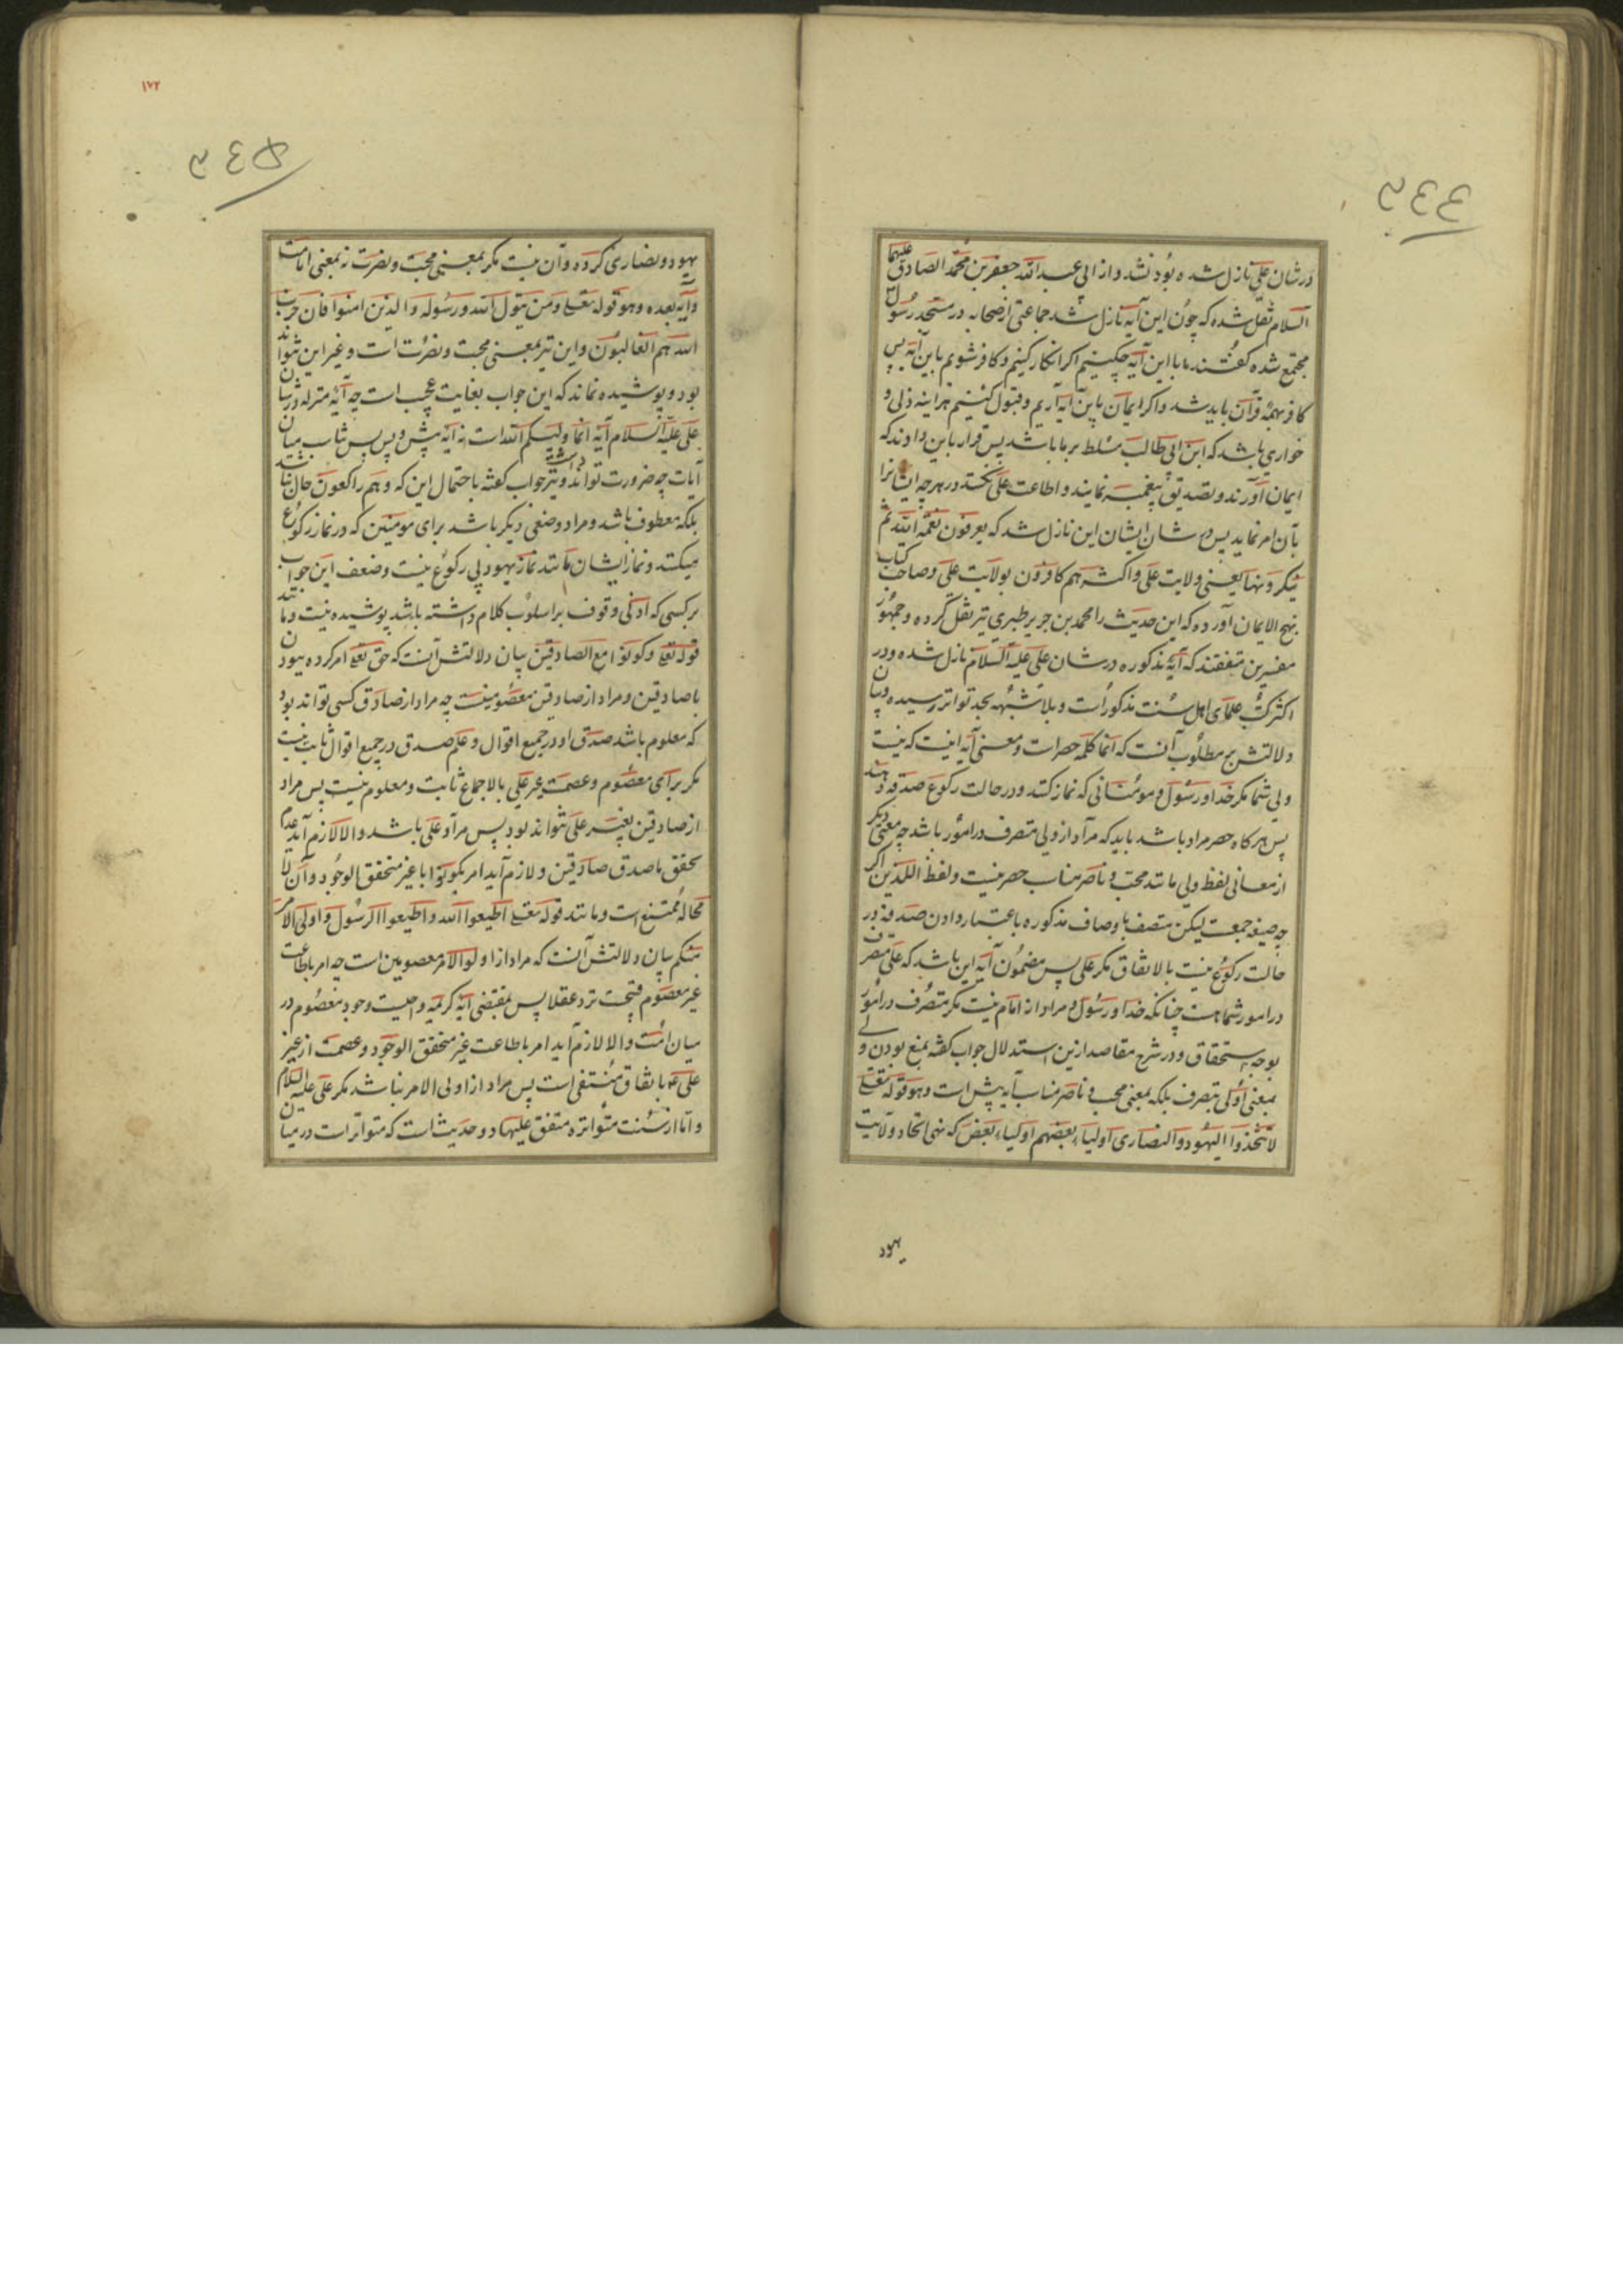 ۳۴۴
در شان علی نازل شده بود نشد و از ابی عبد الله جعفر بن محمد الصادق علیهما
السلام نقل شده که چون این آیه نازل شد جماعتی از صحابه در مسجد رسول
مجتمع شده کفتند ما با این آیه چکنیم اکر انکار کنیم و کافر شویم باین آیه پس
کافر بهمه قرآن باید شد و اکر ایمان باین آیه آریم و قبول کنیم هر اینه ذلی و
خواری باشد که ابن ابی طالب مسلط بر ما باشد پس قرار باین دادند که
ایمان آورند و تصدیق پیغمبر نمایند و اطاعت علی نکنند در هر چه ایشانرا
بآن امر نماید پس در شان ایشان این نازل شد که یعرفون نعمة الله ثم
ینکرونها یعنی ولایت علی و اکثرهم کافرون بولایت علی و صاحب کتاب
نهج الایمان آورده که این حدیث را محمد بن جریر طبری نیز نقل کرده و جمهور
مفسرین متفقند که آیه مذکوره در شان علی علیه السلام نازل شده و در
اکثر کتب علمای اهل سنت مذکورات و بلا شبهه بحد تواتر رسیده و بیان
دلالتش بر مطلوب آنست که انما کلمه حصرات و معنی آیه اینست که نیست
ولی شما مکر خدا و رسول و مومنانی که نماز کنند و در حالت رکوع صدقه دهند
پس هر کاه حصر مراد باشد باید که مراد از ولی متصرف در امور باشد چه معنی دیکر
از معانی لفظ ولی مانند محب و ناصر مناسب حصر نیست و لفظ اللذین اکر
چه صیغه جمعت لیکن متصف باوصاف مذکوره باعتبار دادن صدقه در
حالت رکوع نیست بالاتفاق مکر علی پس مضمون آیه این باشد که علی متصرف
در امور شما هست چنانکه خدا و رسول و مراد از امام نیست مکر متصرف در امور
بوجه استحقاق و در شرح مقاصد ازین استدلال جواب کفته بمنع بودن ولی
بمعنی اولی بتصرف بلکه بمعنی محب و ناصر مناسب آیه پیش است و هو قوله تعالی
لا تتخذوا الیهود و النصاری اولیاء بعضهم اولیاء بعض که نهی اتحاد ولایت
یهود
۱۷۲
۳۴۵
یهود و نصاری کرده و آن نیست مکر بمعنی محبت و نصرت نه بمعنی امامت
و آیه بعده و هو قوله تعالی و من یتول الله و رسوله و الذین امنوا فان حزب
الله هم الغالبون و این نیز بمعنی محبت و نصرت است و غیر این نتواند
بود و پوشیده نماند که این جواب بغایت عجب است چه آیه منزله در شان
علی علیه السلام آیه انما ولیکم الله است نه آیه پیش و پس پس تناسب میان
آیات چه ضرورت تواند داشت و نیز جواب کفته باحتمال این که و هم راکعون حال نباشد
بلکه معطوف باشد و مراد وصفی دیکر باشد برای مومنین که در نماز رکوع
میکنند و نماز ایشان مانند نماز یهود بی رکوع نیست و ضعف این جواب
بر کسی که ادنی وقوف بر اسلوب کلام داشته باشد پوشیده نیست و مانند
قوله تعالی و کونوا مع الصادقین بیان دلالتش آنست که حق تعالی امر کرده ببودن
با صادقین و مراد از صادقین معصومینست چه مراد از صادق کسی تواند بود
که معلوم باشد صدق او در جمیع اقوال و علم صدق در جمیع اقوال ثابت نیست
مکر برای معصوم و عصمت غیر علی بالاجماع ثابت و معلوم نیست پس مراد
از صادقین بغیر علی نتواند بود پس مراد علی باشد و الا لازم آید عدم
تحقق ما صدق صادقین و لازم آید امر بکونوا با غیر متحقق الوجود و آن لا
محاله ممتنع است و مانند قوله تعالی اطیعوا الله و اطیعوا الرسول و اولی الامر
منکم بیان دلالتش آنست که مراد از اولوالامر معصومین است چه امر باطاعت
غیر معصوم قبیحست نزد عقلا پس بمقتضی آیه کریمه واجبست وجود معصوم در
میان امت و الا لازم آید امر باطاعت غیر متحقق الوجود و عصمت از غیر
علی عم باتفاق منتفی است پس مراد از اولی الامر نباشد مکر علی علیه السلام
و اما از سنت متواتره متفق علیها دو حدیث است که متواترات در میان